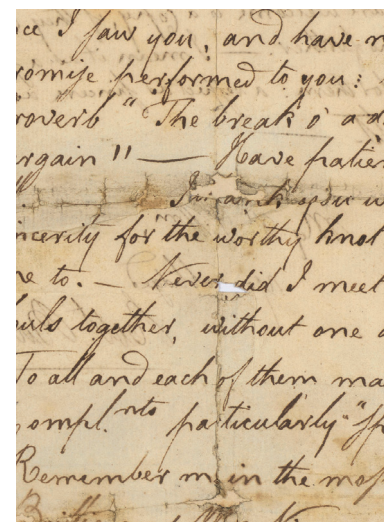 ce I saw you, and have n
romise performed to you:
roverb "The break o' a da
rgain" — Have patien
I thank you w
incerity for the worthy knot
me to. — Never did I meet
ouls together, without one
To all and each of them ma
Compl.nts particularly "Sp
Remember me in the mos